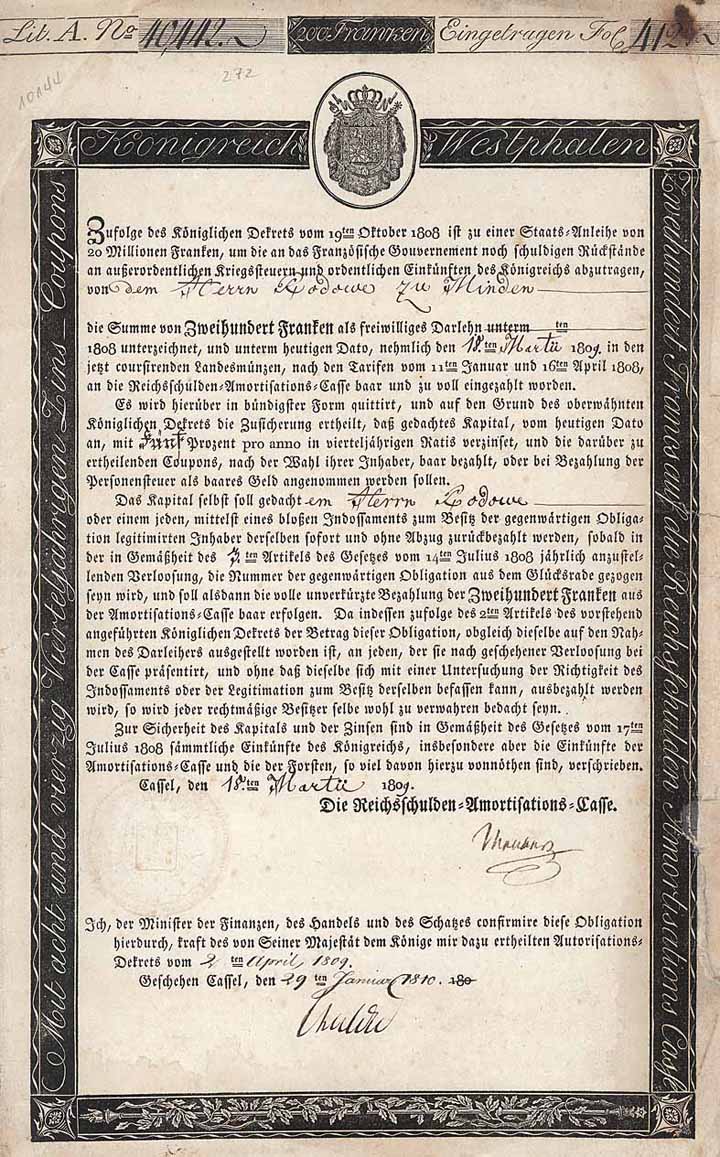 Lit. A. No 40,442. 200 Franken Eingetragen Fol. 412
10144 272
Königreich Westphalen
Mit acht und vierzig Vierteljährigen Zins-Coupons
Zweihundert Franks auf die Reichsschulden Amortisations Casse
Zufolge des Königlichen Dekrets vom 19ten Oktober 1808 ist zu einer Staats-Anleihe von
20 Millionen Franken, um die an das Französische Gouvernement noch schuldigen Rückstände
an außerordentlichen Kriegssteuern und ordentlichen Einkünften des Königreichs abzutragen,
von dem Herrn Rodowe zu Minden
die Summe von Zweihundert Franken als freiwilliges Darlehn unterm ten
1808 unterzeichnet, und unterm heutigen Dato, nehmlich den 18.ten Martii 1809. in den
jetzt coursirenden Landesmünzen, nach den Tarifen vom 11ten Januar und 16ten April 1808,
an die Reichsschulden-Amortisations-Casse baar und zu voll eingezahlt worden.
Es wird hierüber in bündigster Form quittirt, und auf den Grund des oberwähnten
Königlichen Dekrets die Zusicherung ertheilt, daß gedachtes Kapital, vom heutigen Dato
an, mit Fünf Prozent pro anno in vierteljährigen Ratis verzinset, und die darüber zu
ertheilenden Coupons, nach der Wahl ihrer Inhaber, baar bezahlt, oder bei Bezahlung der
Personensteuer als baares Geld angenommen werden sollen.
Das Kapital selbst soll gedachtem Herrn Rodowe
oder einem jeden, mittelst eines bloßen Indossaments zum Besitz der gegenwärtigen Obliga-
tion legitimirten Inhaber derselben sofort und ohne Abzug zurückbezahlt werden, sobald in
der in Gemäßheit des 7.ten Artikels des Gesetzes vom 14ten Julius 1808 jährlich anzustel-
lenden Verloosung, die Nummer der gegenwärtigen Obligation aus dem Glücksrade gezogen
seyn wird, und soll alsdann die volle unverkürzte Bezahlung der Zweihundert Franken aus
der Amortisations-Casse baar erfolgen. Da indessen zufolge des 2ten Artikels des vorstehend
angeführten Königlichen Dekrets der Betrag dieser Obligation, obgleich dieselbe auf den Nah-
men des Darleihers ausgestellt worden ist, an jeden, der sie nach geschehener Verloosung bei
der Casse präsentirt, und ohne daß dieselbe sich mit einer Untersuchung der Richtigkeit des
Indossaments oder der Legitimation zum Besitz derselben befassen kann, ausbezahlt werden
wird, so wird jeder rechtmäßige Besitzer selbe wohl zu verwahren bedacht seyn.
Zur Sicherheit des Kapitals und der Zinsen sind in Gemäßheit des Gesetzes vom 17ten
Julius 1808 sämmtliche Einkünfte des Königreichs, insbesondere aber die Einkünfte der
Amortisations-Casse und die der Forsten, so viel davon hierzu vonnöthen sind, verschrieben.
Cassel, den 18.ten Martii 1809.
Die Reichsschulden-Amortisations-Casse.
Ich, der Minister der Finanzen, des Handels und des Schatzes confirmire diese Obligation
hierdurch, kraft des von Seiner Majestät dem Könige mir dazu ertheilten Autorisations-
Dekrets vom 2ten April 1809.
Geschehen Cassel, den 29ten Januar 1810. 180